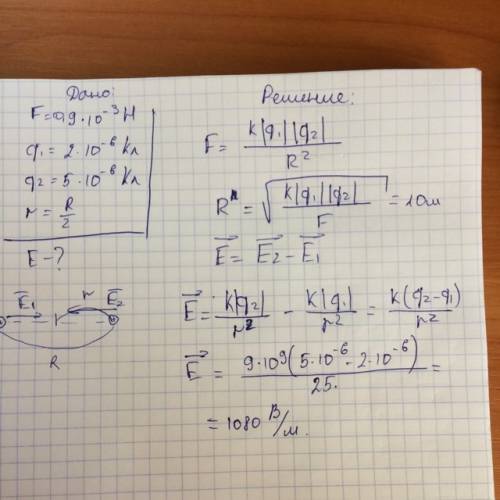 Дано:
F=0,9·10⁻³ Н
q₁=2·10⁻⁶ Кл
q₂=5·10⁻⁶ Кл
r=R/2
E-?
E₁ r E₂
R
Решение:
F= k|q₁||q₂| / R²
R=√(k|q₁||q₂| / F)=10м
E⃗=E⃗₂-E⃗₁
E⃗= k|q₂|/r² - k|q₁|/r² = k(q₂-q₁)/r²
E⃗= 9·10⁹(5·10⁻⁶-2·10⁻⁶) / 25 =
=1080 В/м.